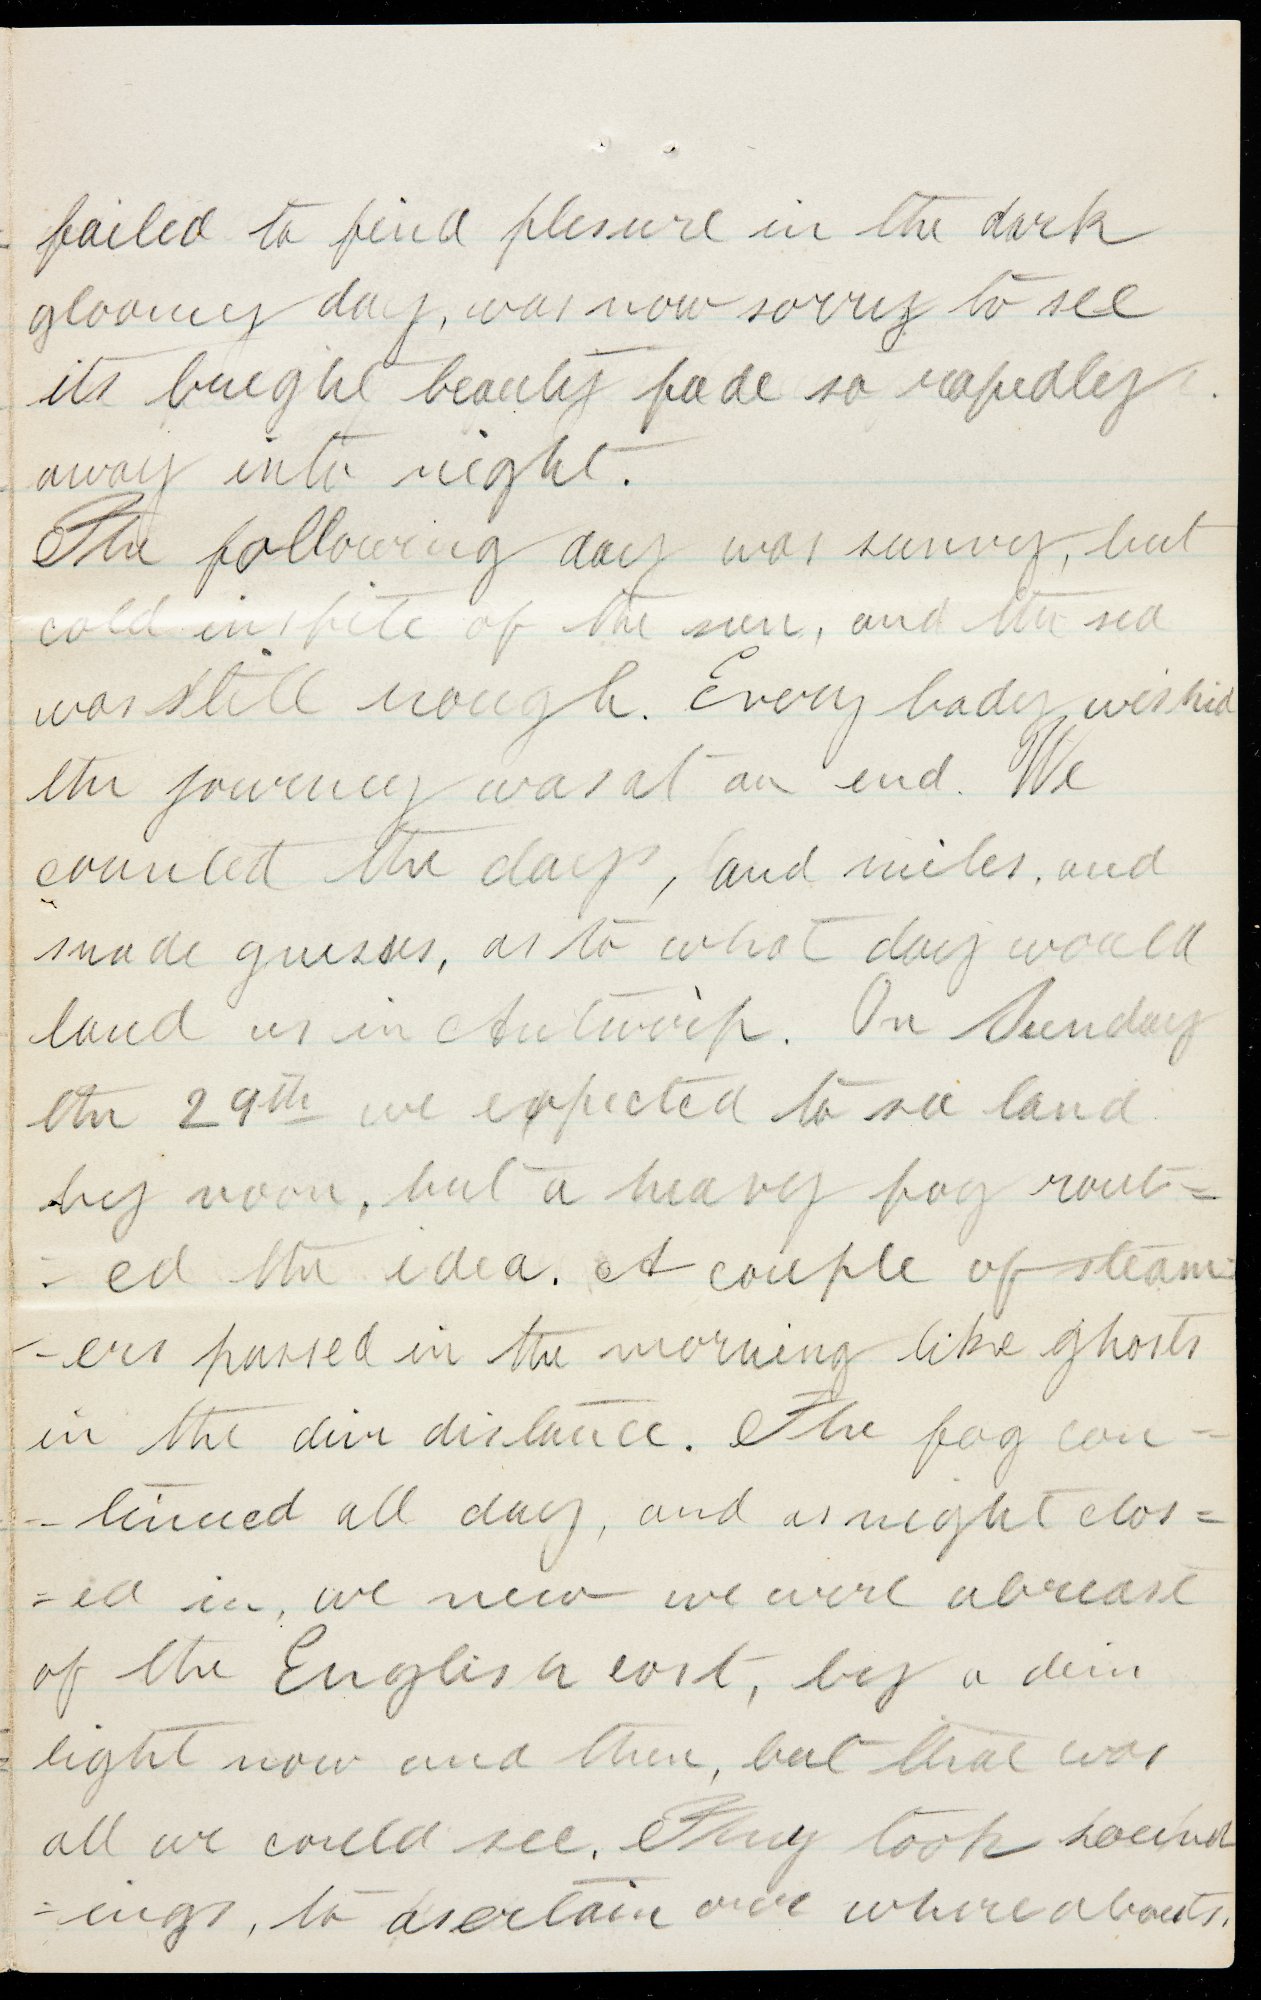 failed to find plesure in the dark
gloomy day, was now sorry to see
its bright beauty fade so rapedley
away into night.
The following day was sunny, but
cold in spite of the sun, and the sea
was still rough. Every body wished
the journey was at an end. We
counted the days, and miles, and
made guesses, as to what day would
land us in Antwerp. On Sunday
the 29th we expected to see land
by noon, but a heavy fog rout=
=ed the idea. A couple of steam=
-ers passed in the morning like ghosts
in the dim distance. The fog con-
-tinued all day, and as night clos=
=ed in, we new we were abreast
of the English cost, by a dim
light now and then, but that was
all we could see. They took sound
=ings, to asertain our whereabouts.